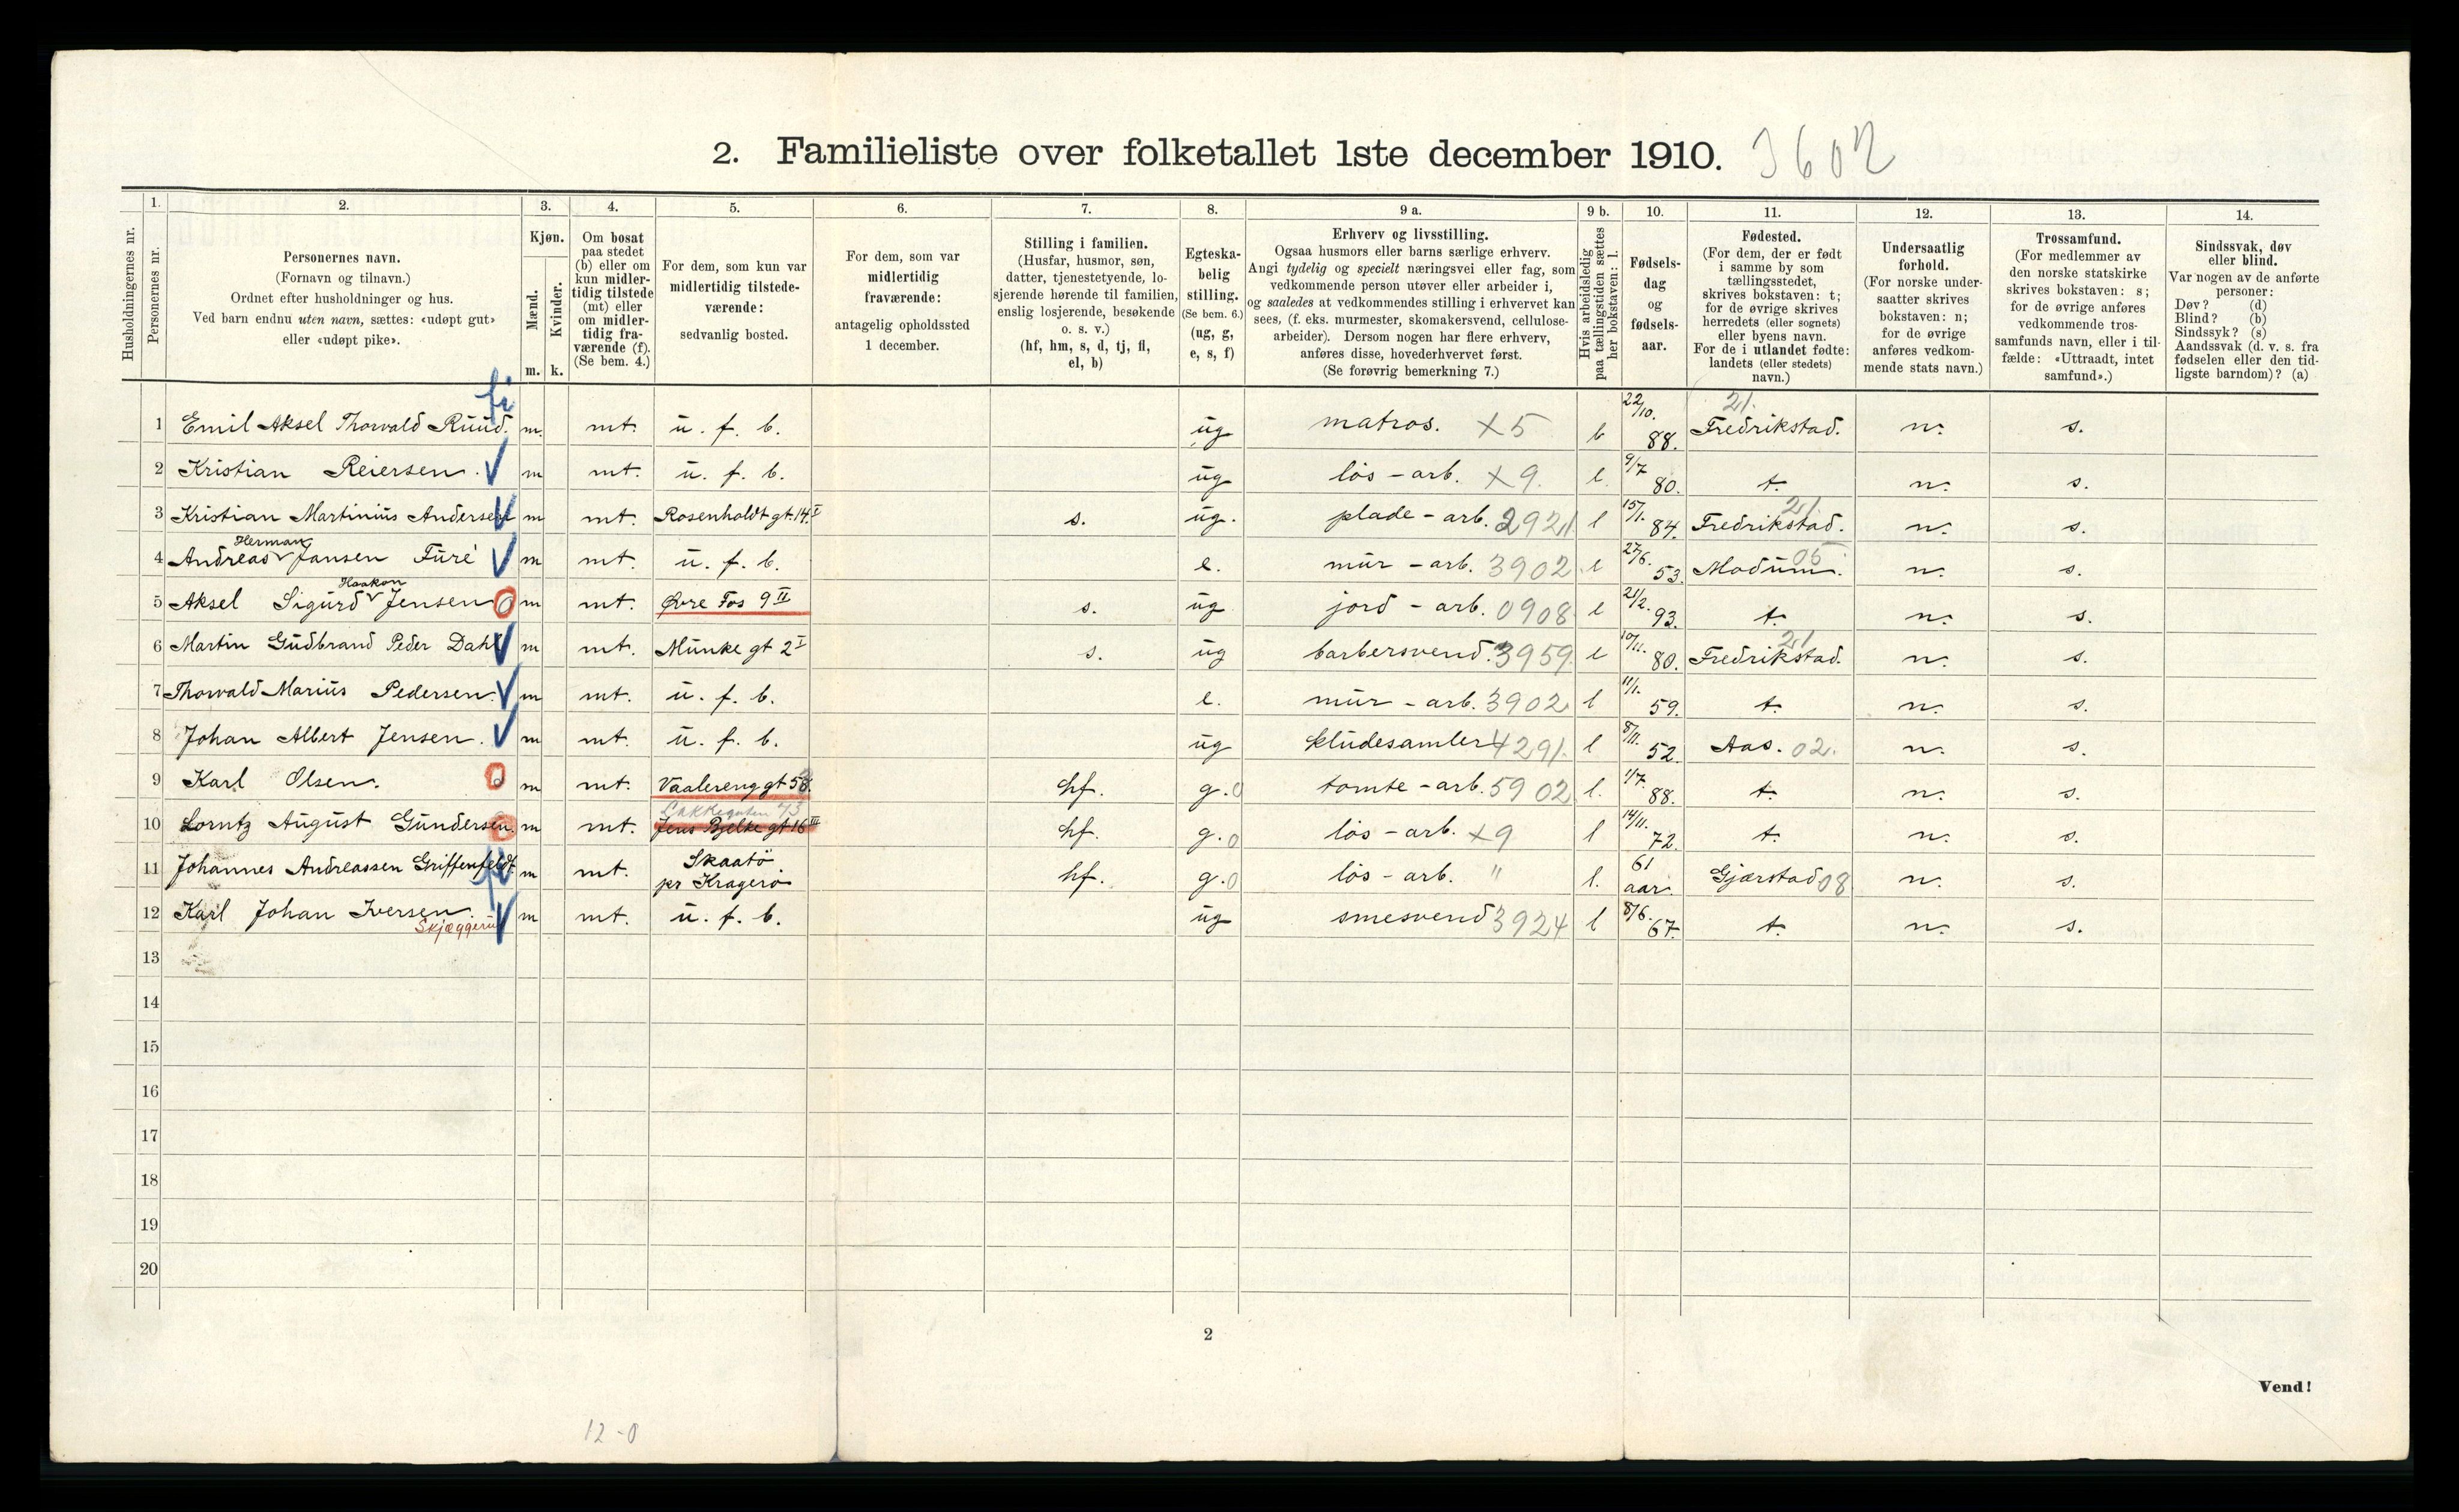 2. Familieliste over folketallet 1ste december 1910. 3602
Husholdningernes nr.
1. Personernes nr.
2.
Personernes navn.
(Fornavn og tilnavn.)
Ordnet efter husholdninger og hus.
Ved barn endnu uten navn, sættes: «udøpt gut»
eller «udøpt pike».
3.
Kjøn.
Mænd.
Kvinder.
m. k.
4.
Om bosat
paa stedet
(b) eller om
kun midler-
tidig tilstede
(mt) eller
om midler-
tidig fra-
værende (f).
(Se bem. 4.)
5.
For dem, som kun var
midlertidig tilstede-
værende:
sedvanlig bosted.
6.
For dem, som var
midlertidig
fraværende:
antagelig opholdssted
1 december.
7.
Stilling i familien.
(Husfar, husmor, søn,
datter, tjenestetyende, lo-
sjerende hørende til familien,
enslig losjerende, besøkende
o. s. v.)
(hf, hm, s, d, tj, fl,
el, b)
8.
Egteska-
belig
stilling.
(Se bem. 6.)
(ug, g,
e, s, f)
9 a.
Erhverv og livsstilling.
Ogsaa husmors eller barns særlige erhverv.
Angi tydelig og specielt næringsvei eller fag, som
vedkommende person utøver eller arbeider i,
og saaledes at vedkommendes stilling i erhvervet kan
sees, (f. eks. murmester, skomakersvend, cellulose-
arbeider). Dersom nogen har flere erhverv,
anføres disse, hovederhvervet først.
(Se forøvrig bemerkning 7.)
9 b.
Hvis arbeidsledig
paa tællingstiden sættes
her bokstaven: l.
10.
Fødsels-
dag
og
fødsels-
aar.
11.
Fødested.
(For dem, der er født
i samme by som
tællingsstedet,
skrives bokstaven: t;
for de øvrige skrives
herredets (eller sognets)
eller byens navn.
For de i utlandet fødte:
landets (eller stedets)
navn.)
12.
Undersaatlig
forhold.
(For norske under-
saatter skrives
bokstaven: n;
for de øvrige
anføres vedkom-
mende stats navn.)
13.
Trossamfund.
(For medlemmer av
den norske statskirke
skrives bokstaven: s;
for de øvrige anføres
vedkommende tros-
samfunds navn, eller i til-
fælde: «Uttraadt, intet
samfund».)
14.
Sindssvak, døv
eller blind.
Var nogen av de anførte
personer:
Døv? (d)
Blind? (b)
Sindssyk? (s)
Aandssvak (d. v. s. fra
fødselen eller den tid-
ligste barndom)? (a)
1 Emil Aksel Thorvald Ruud. m. mt. u. f. b. ug matros. ×5 b 22/10. 88. Fredrikstad. 21. n. s.
2 Kristian Reiersen. m mt. u. f. b. ug løs-arb. ×9. l. 9/7 80. t. n. s.
3 Kristian Martinius Andersen m mt. Rosenholdt gt. 14 I s. ug. plade-arb. 2921 l 15/1. 84. Fredrikstad. 21. n. s.
4 Andreas Herman Jansen Furé m mt. u. f. b. e. mur-arb. 3902 l 27/6. 53. Modum. 05 n. s.
5 Aksel Sigurd Haakon Jensen m mt. Øvre Fos 9 II s. ug jord-arb. 0908 l 21/2. 93. t. n. s.
6 Martin Gudbrand Peder Dahl m mt. Munke gt 2 I s. ug barbersvend. 3959 l 10/11. 80. Fredrikstad. 21 n. s.
7 Thorvald Marius Pedersen. m mt. u. f. b. e. mur-arb. 3902 l 11/1. 59. t. n. s.
8 Johan Albert Jensen. m mt. u. f. b. ug kludesamler 4291. l 8/11. 52. Aas. 02. n. s.
9 Karl Olsen. m mt. Vaalereng gt 58. hf. g. 0 tomte-arb. 5902 l. 1/7. 88. t. n. s.
10 Lorntz August Gundersen. m mt. Lakkegaten 73 Jens Bjelke gt 16 III hf. g. 0 løs-arb. ×9 l 14/11. 72. t. n. s.
11 Johannes Andreassen Griffenfeldt. m mt. Skaatø pr Kragerø hf. g. 0 løs-arb. " l. 61 aar. Gjærstad 08 n. s.
12 Karl Johan Iversen. Skjæggerud m mt. u. f. b. ug smesvend 3924 l 8/6. 67. t. n. s.
13
14
15
16
17
18
19
20
2
Vend!
12-0